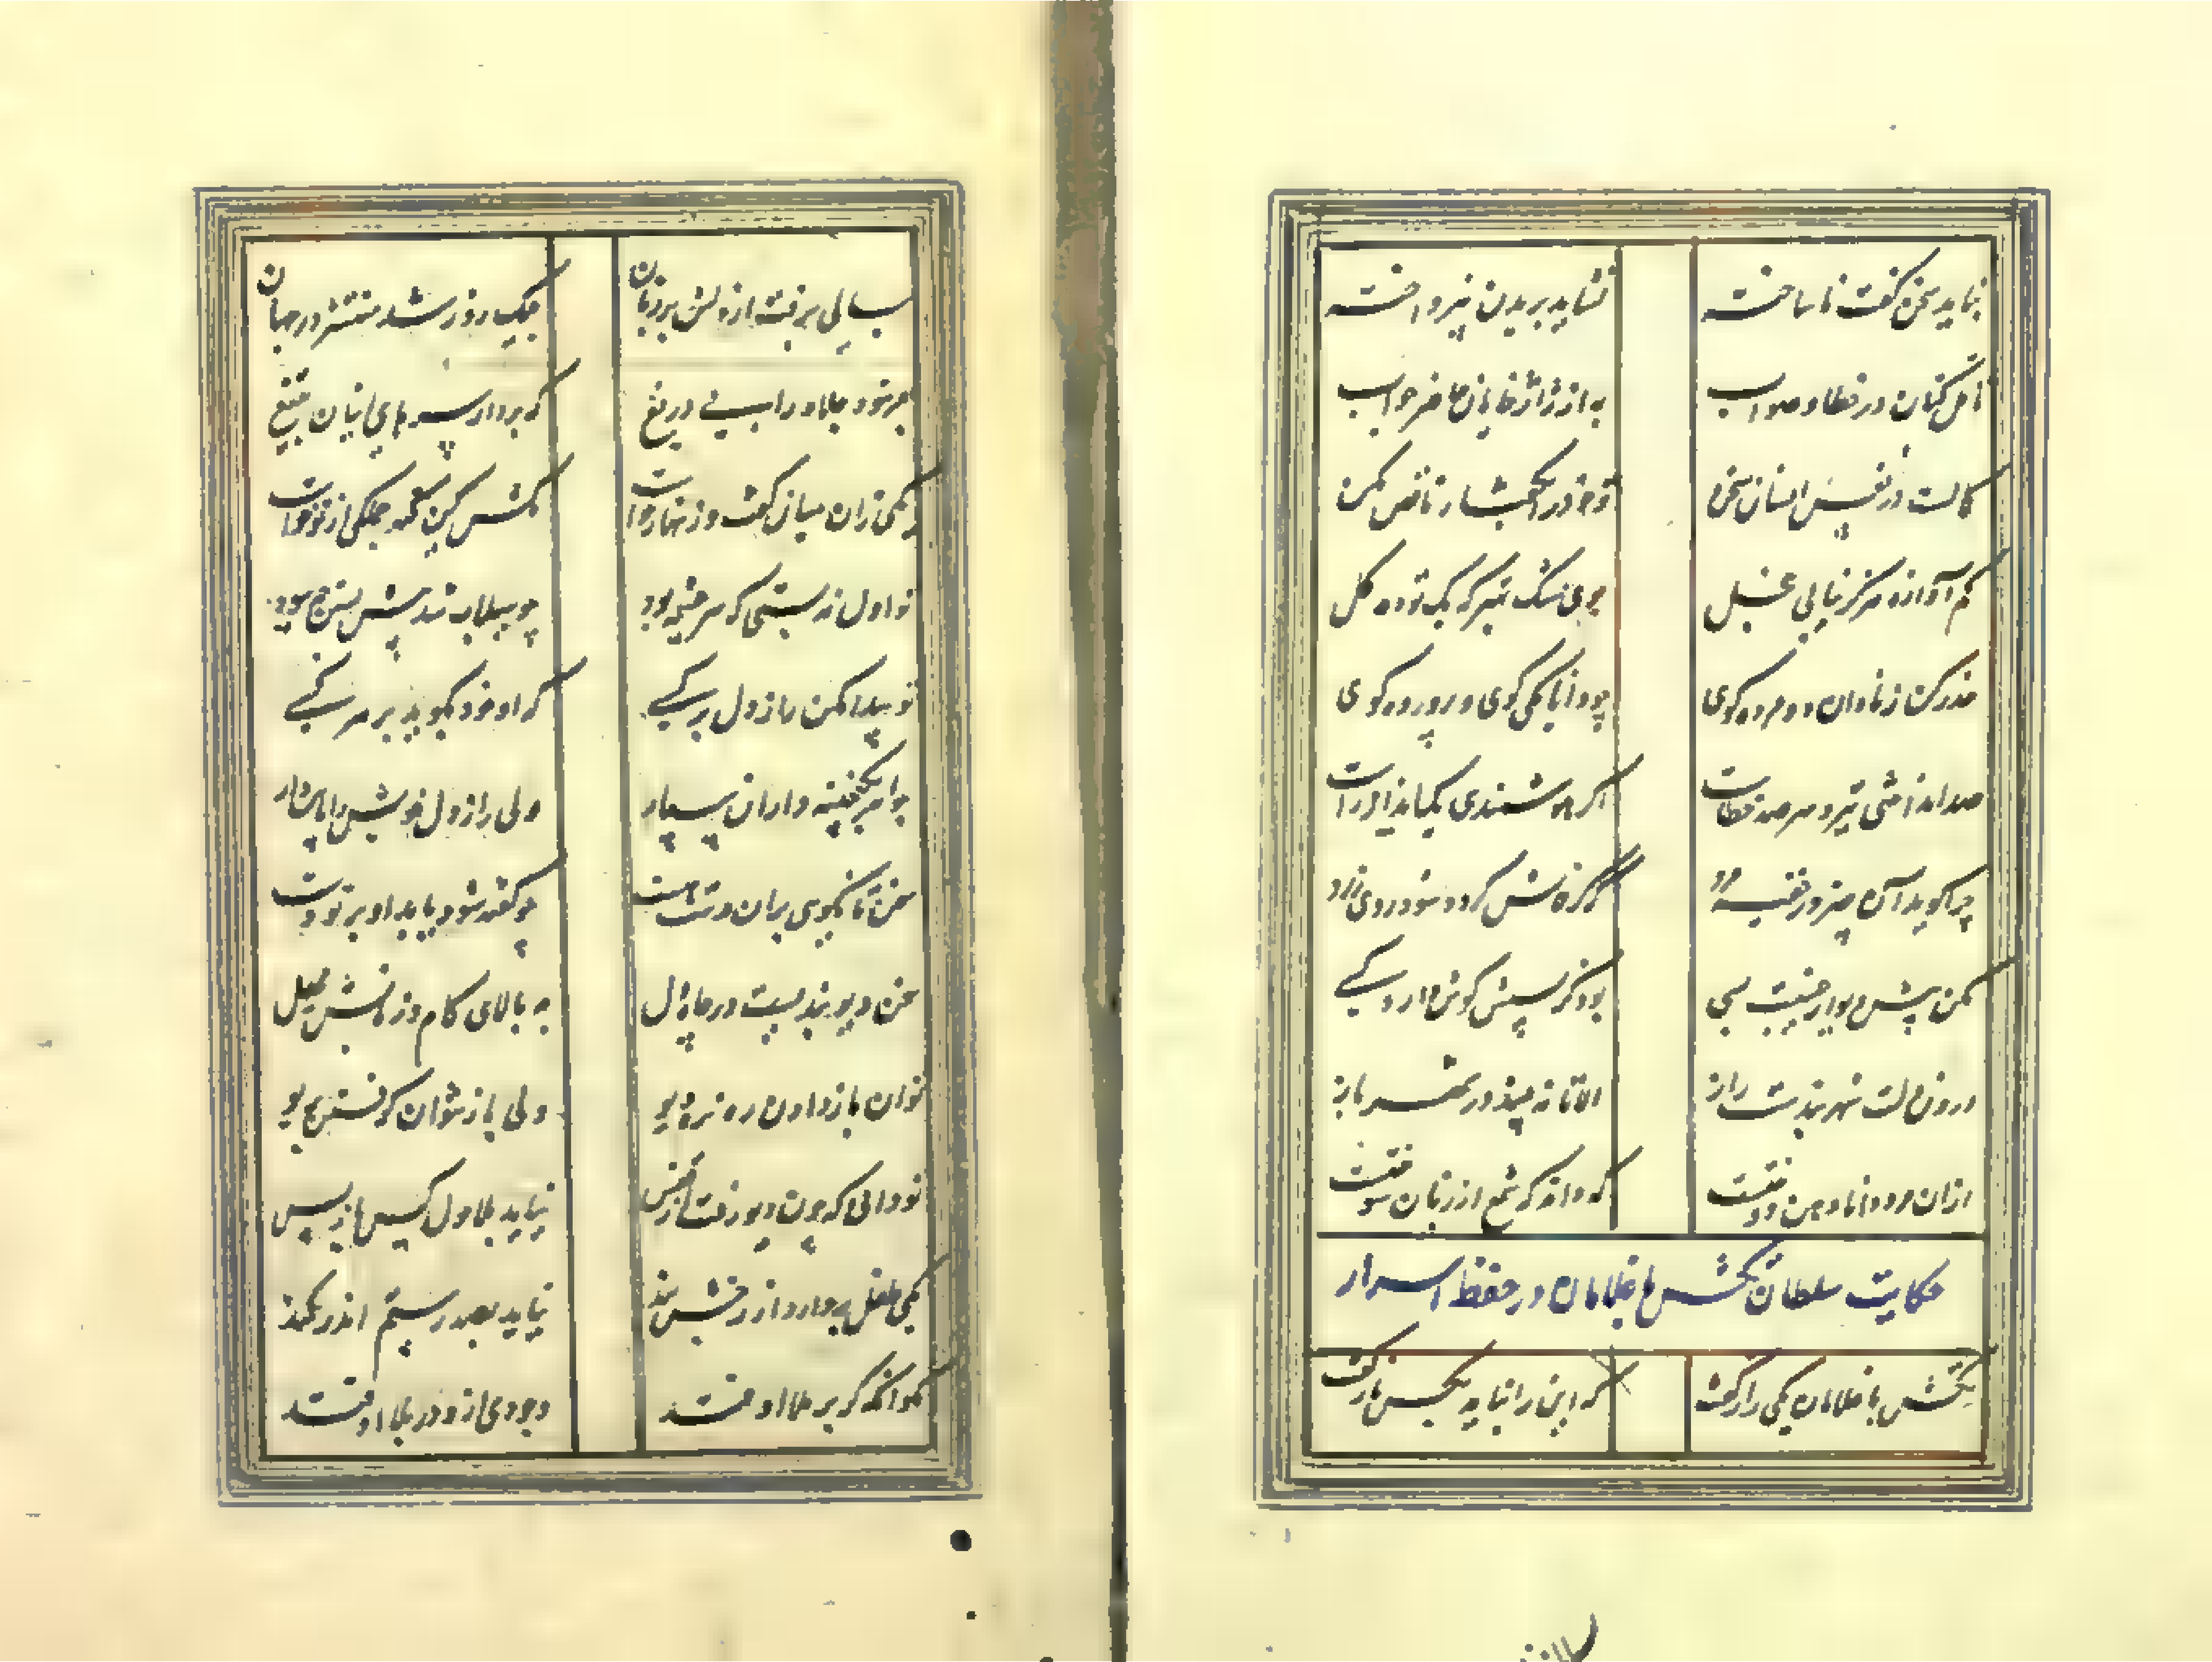 نباید سخن گفت ناساخته نشاید بریدن نینداخته
تأمل کنان در خطا و صواب به از ژاژخایان حاضر جواب
کمالست در نفس انسان سخن تو خود را بگفتار ناقص مکن
کم آواز هرگز نبینی خجل جوی مشک بهتر که یک توده گل
حذر کن ز نادان ده مرده گوی چو دانا یکی گوی و پرورده گوی
صد انداختی تیر و هر صد خطاست اگر هوشمندی یک انداز و راست
چرا گوید آن چیز در خفیه مرد که گر فاش گردد شود روی زرد
مکن پیش دیوار غیبت بسی بود کز پسش گوش دارد کسی
درون دلت شهربندست راز الا تا نبیند در شهر باز
ازان مرد دانا دهن دوختست که داند که شمع از زبان سوختست
حکایت سلطان تکش با غلامان در حفظ اسرار
تکش با غلامان یکی راز گفت که این را نباید بکس باز گفت
بسالی برفت از دلش بر زبان بیک روز شد منتشر در جهان
بفرمود جلاد را بی دریغ که بردار سرهای اینان به تیغ
یکی زان میان گفت و زنهار خواست مکش کین گنه جملگی از تو خواست
تو اول نه بستی که سرچشمه بود چو سیلاب شد پیش بستن چه سود
تو پیدا مکن راز دل بر کسی که او خود بگوید بر هر کسی
جواهر بگنجینه داران سپار ولی راز دل خویش را پاس دار
سخن تا نگویی بران دست هست چو گفته شود یابد او بر تو دست
سخن دیو بندیست در چاه دل به بالای کام و زبانش مهل
توان باز دادن ره نره دیو ولی باز نتوان گرفتن بریو
تو دانی که چون دیو رفت از قفس نیاید بلا حول کس باز پس
یکی طفل بردارد از رخش بند نیاید بصد رستم اندر کمند
مگو آنکه گر بر ملا اوفتد وجودی از و در بلا اوفتد